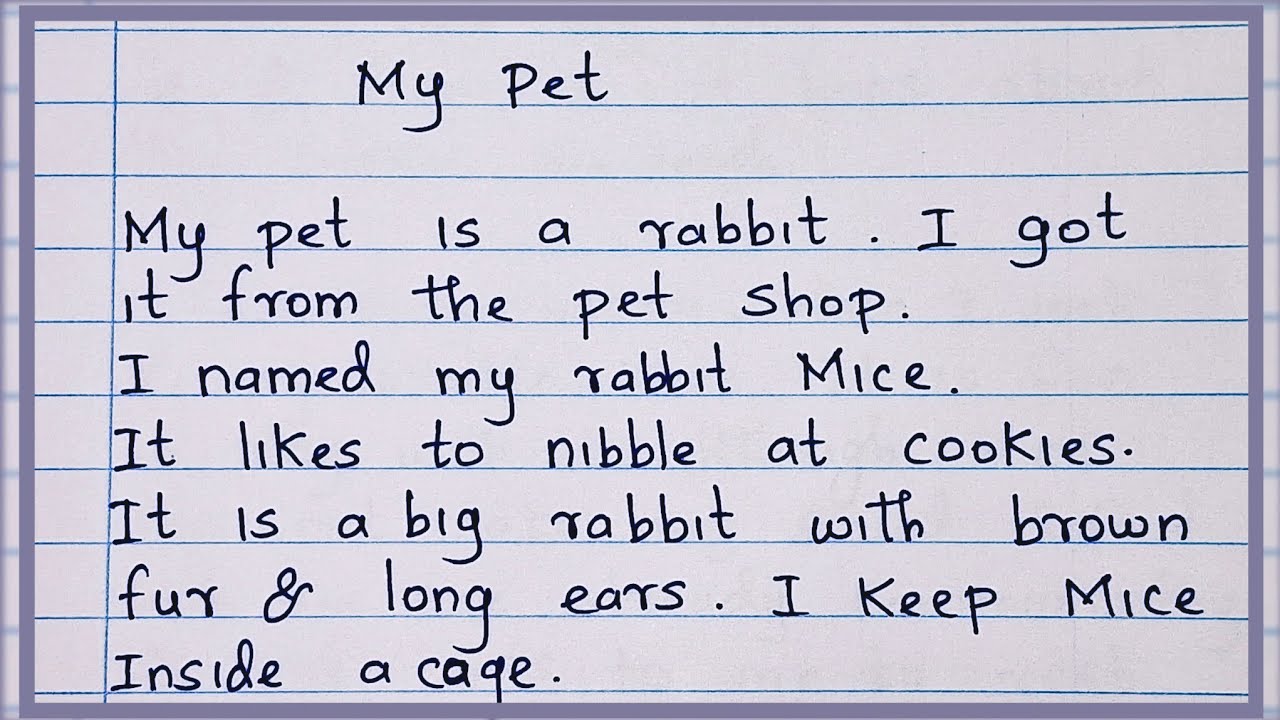 My Pet
My pet is a rabbit. I got
it from the pet shop.
I named my rabbit Mice.
It likes to nibble at cookies.
It is a big rabbit with brown
fur & long ears. I Keep Mice
Inside a cage.